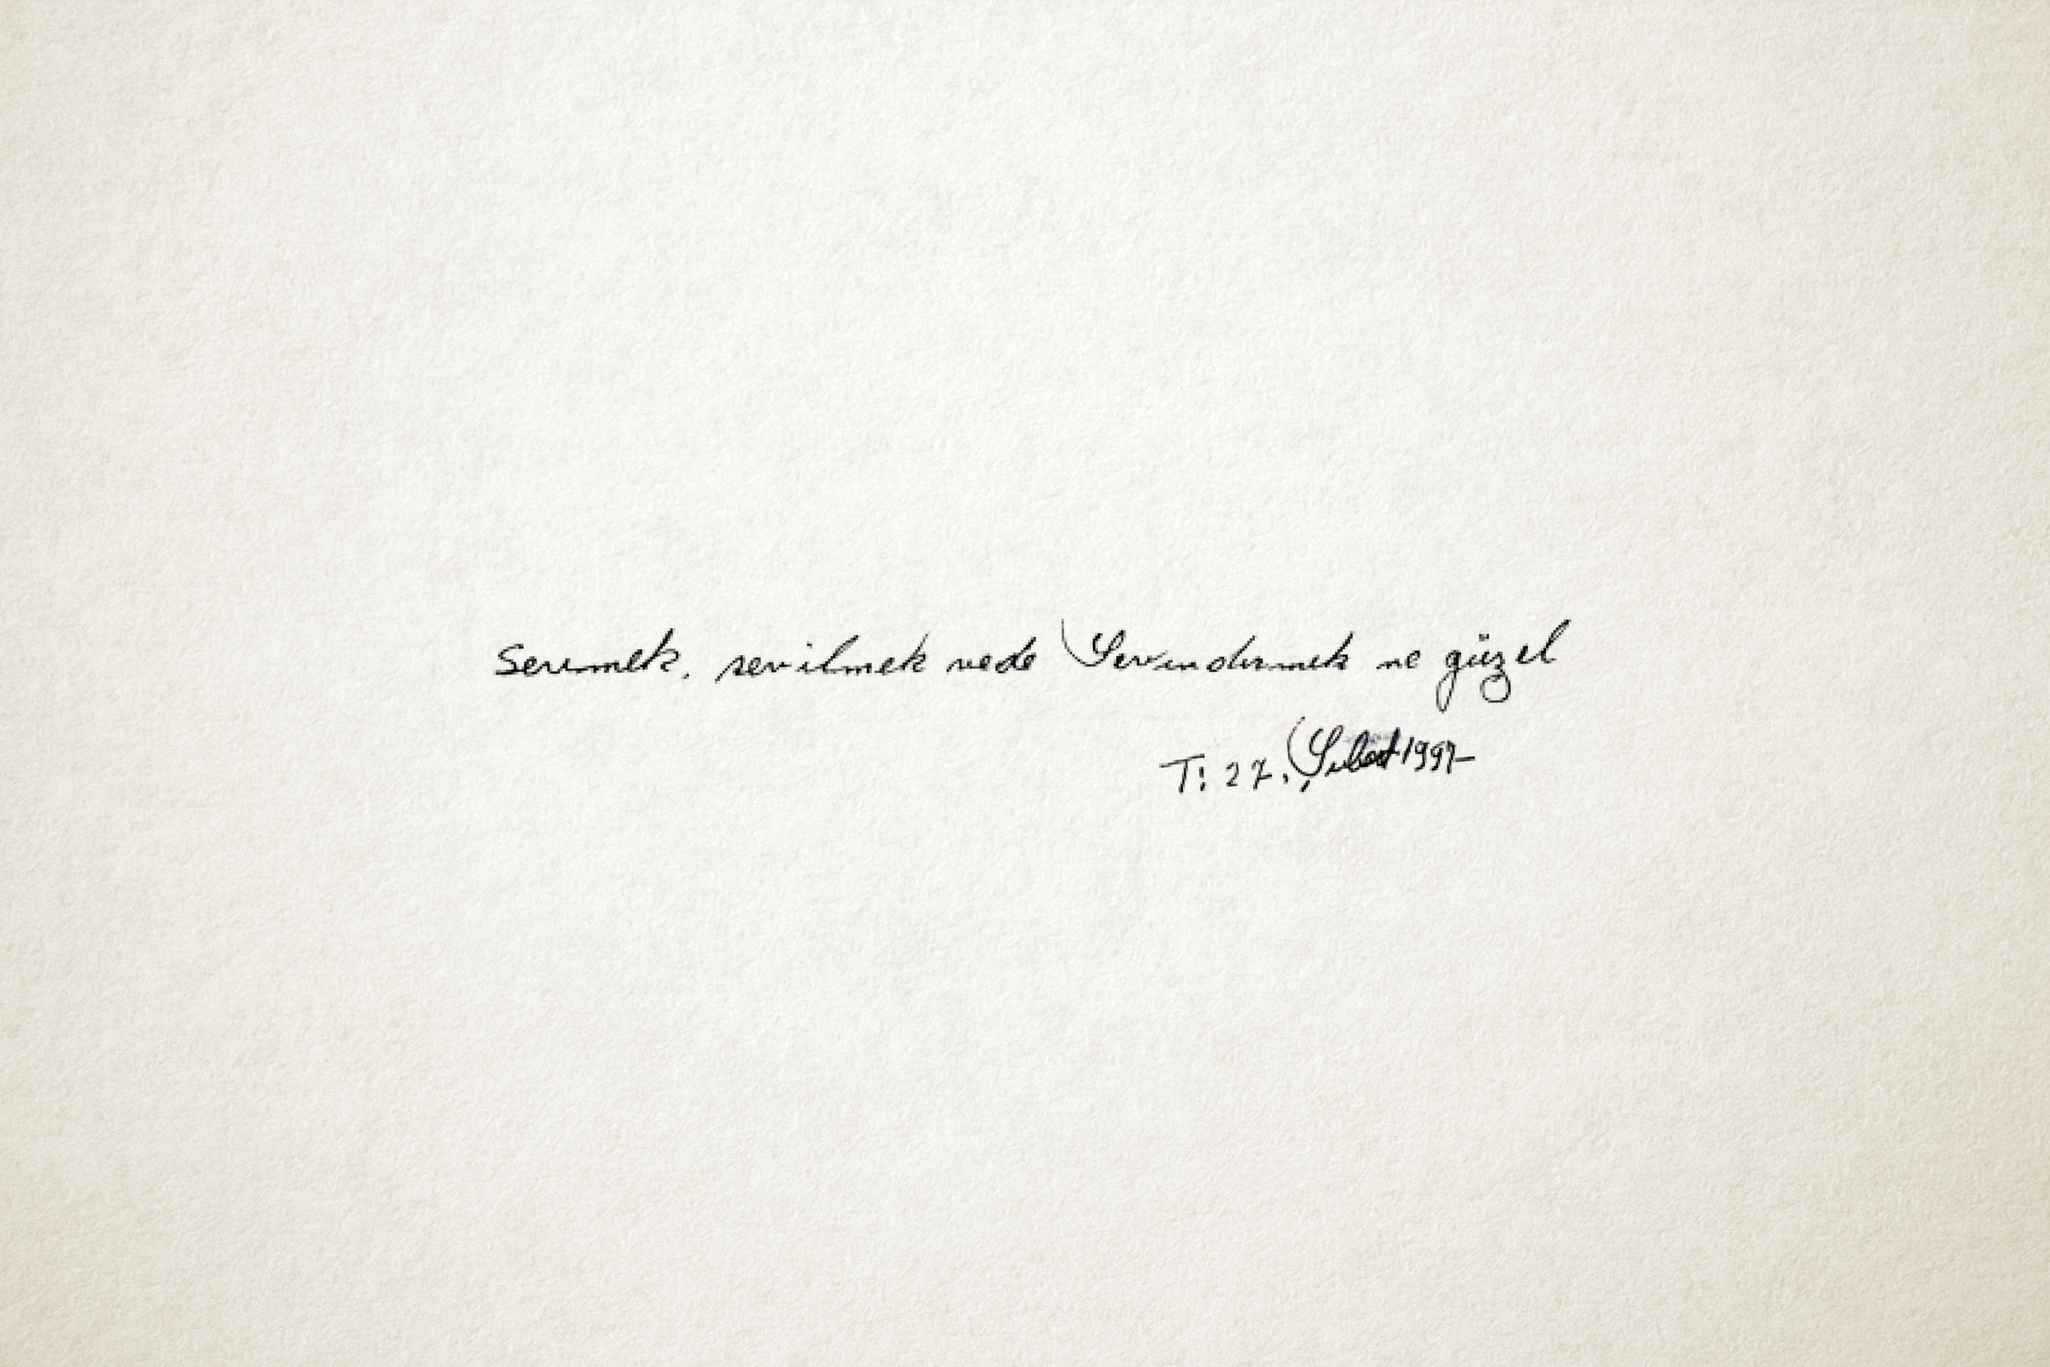 Sevmek, sevilmek vede Sevindirmek ne güzel
T: 27. Şubat 1997